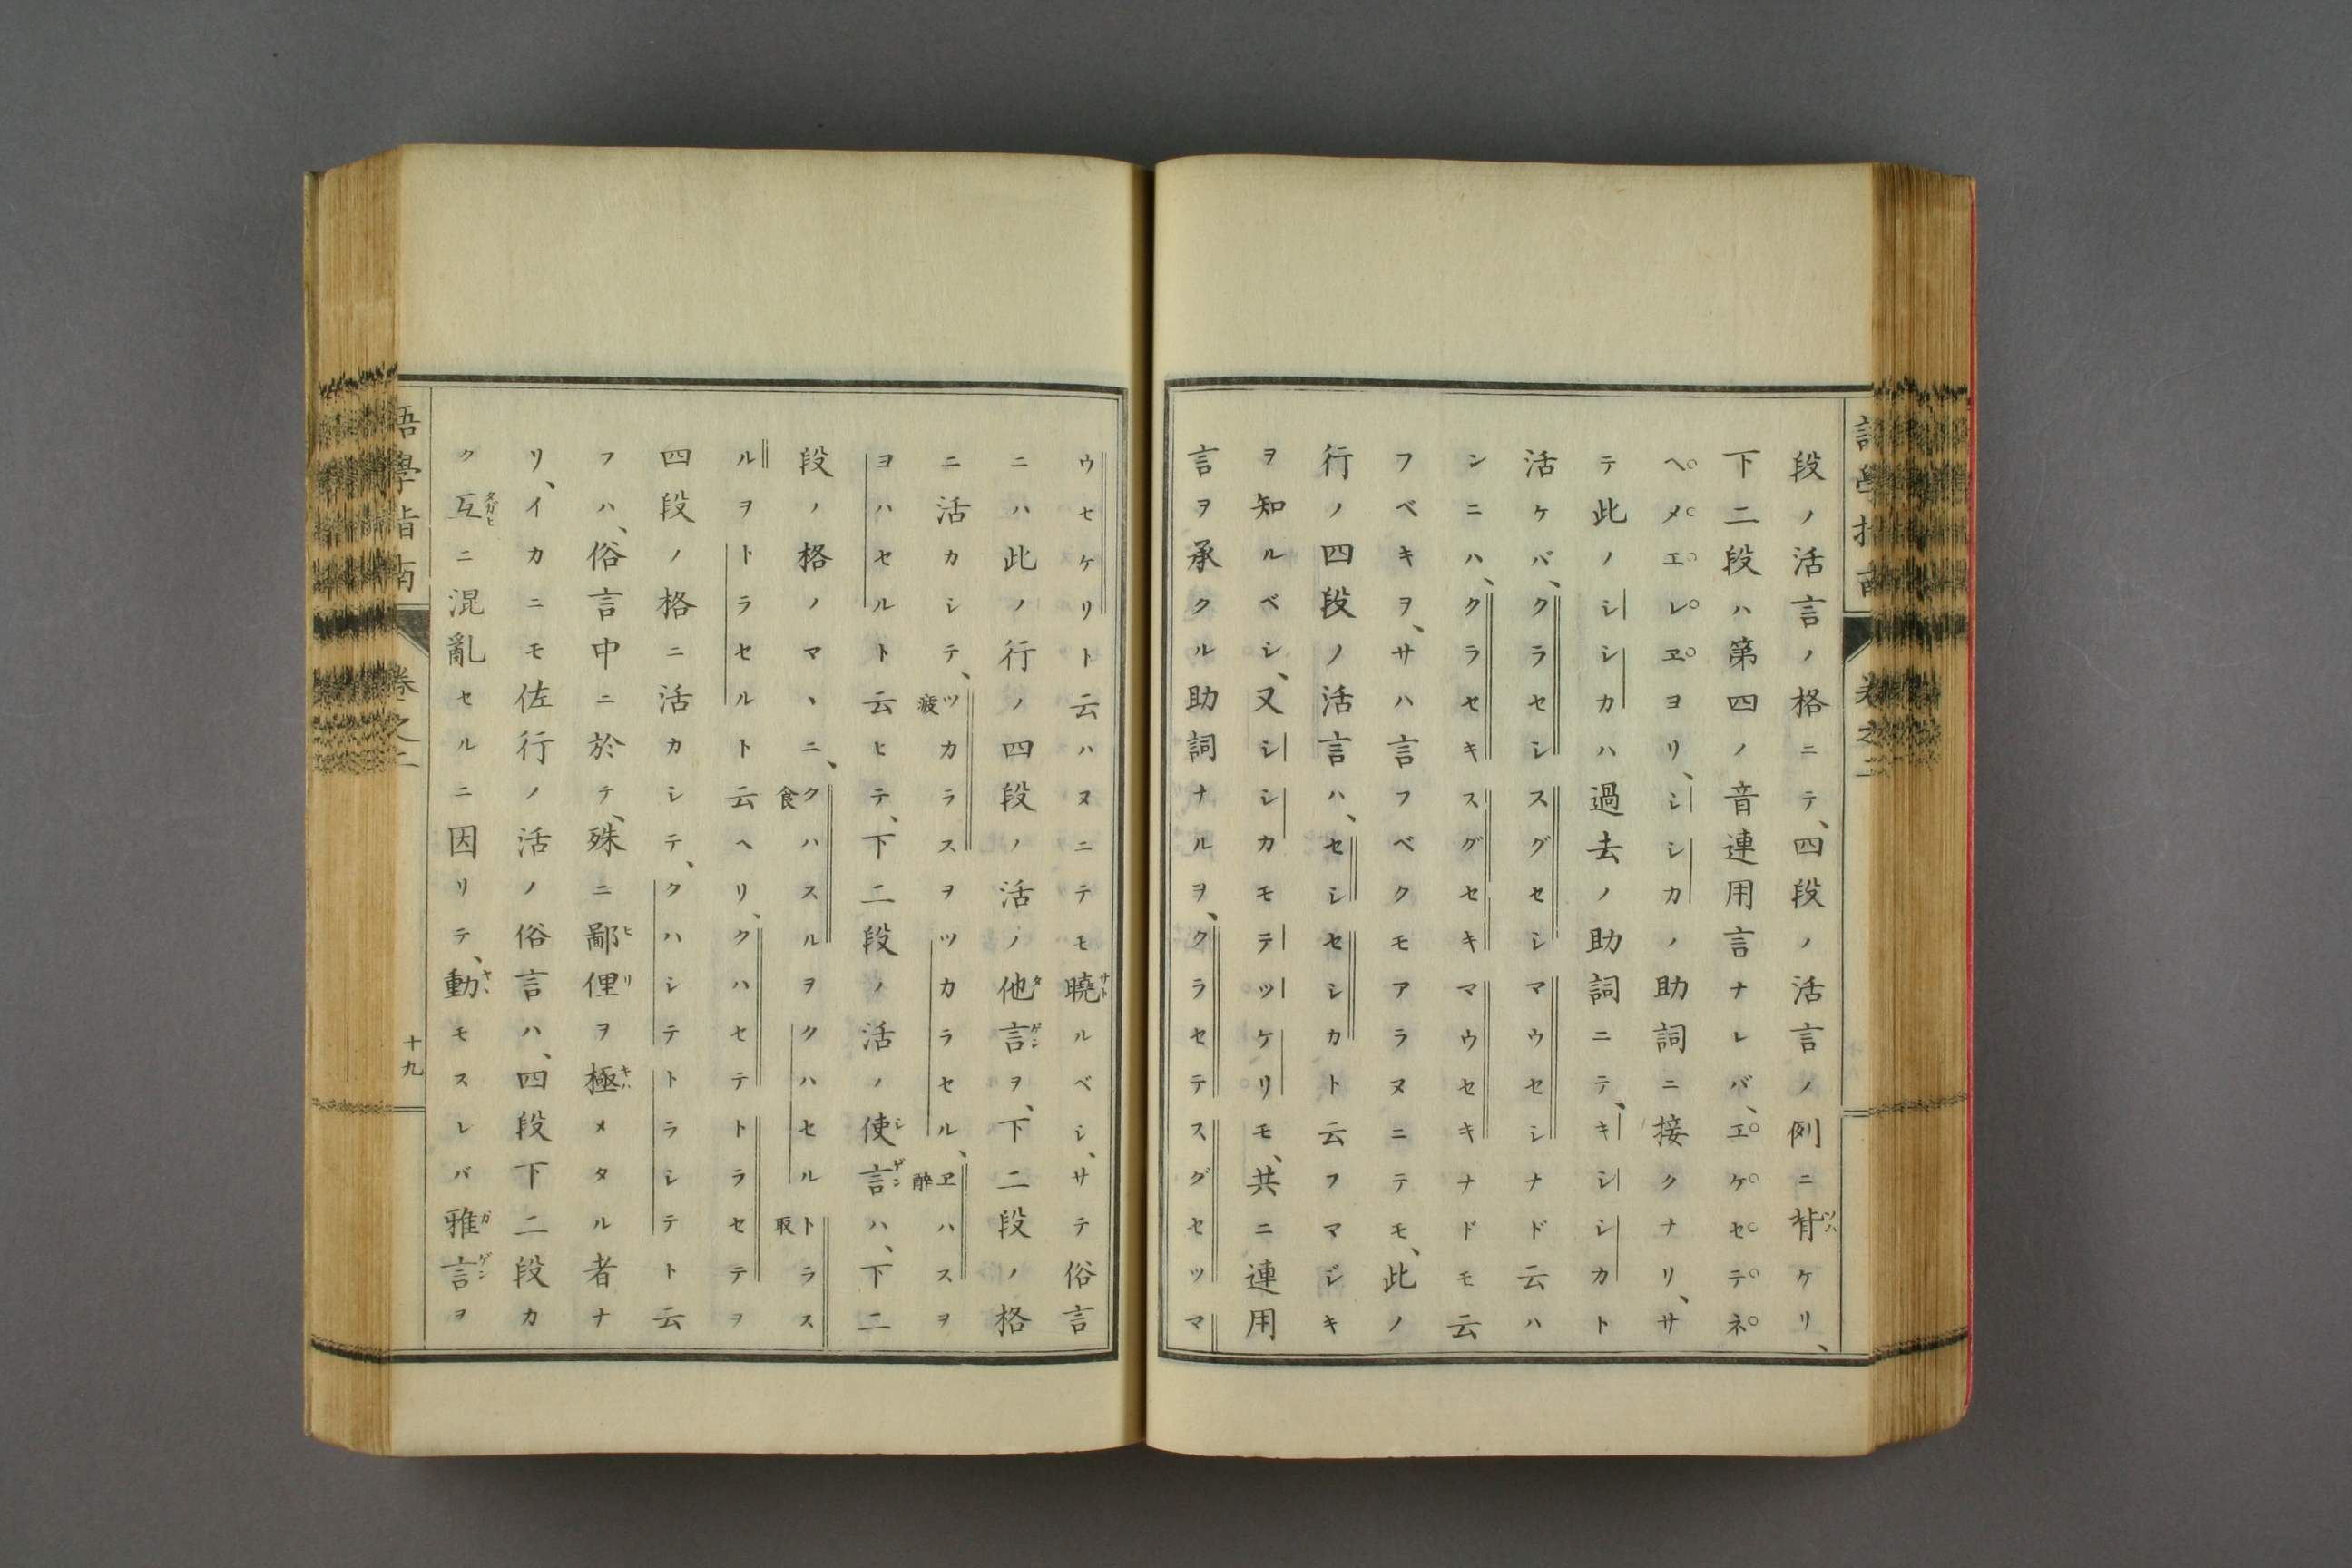 段ノ活言ノ格ニテ、四段ノ活言ノ例ニ背ケリ、
下二段ハ第四ノ音連用言ナレバ、エケセテネ
ヘメエレヱヨリ、シシカノ助詞ニ接クナリ、サ
テ此ノシシカハ過去ノ助詞ニテ、キシシカト
活ケバ、クラセシスグセシマウセシナド云ハ
ンニハ、クラセキスグセキマウセキナドモ云
フベキヲ、サハ言フベクモアラヌニテモ、此ノ
行ノ四段ノ活言ハ、セシセシカト云フマジキ
ヲ知ルベシ、又シシカモテツケリモ、共ニ連用
言ヲ承クル助詞ナルヲ、クラセテスグセツマ
ウセケリト云ハヌニテモ曉ルベシ、サテ俗言
ニハ此ノ行ノ四段ノ活ノ他言ヲ、下二段ノ格
ニ活カシテ、ツカラスヲツカラセル、ヱハスヲ
疲 醉
ヨハセルト云ヒテ、下二段ノ活ノ使言ハ、下二
段ノ格ノマヽニ、クハスルヲクハセルトラス
食 取
ルヲトラセルト云ヘリ、クハセテトラセテヲ
四段ノ格ニ活カシテ、クハシテトラシテト云
フハ、俗言中ニ於テ、殊ニ鄙俚ヲ極メタル者ナ
リ、イカニモ佐行ノ活ノ俗言ハ、四段下二段カ
ク互ニ混亂セルニ因リテ、動モスレバ雅言ヲ
語學指南 卷之二
十九